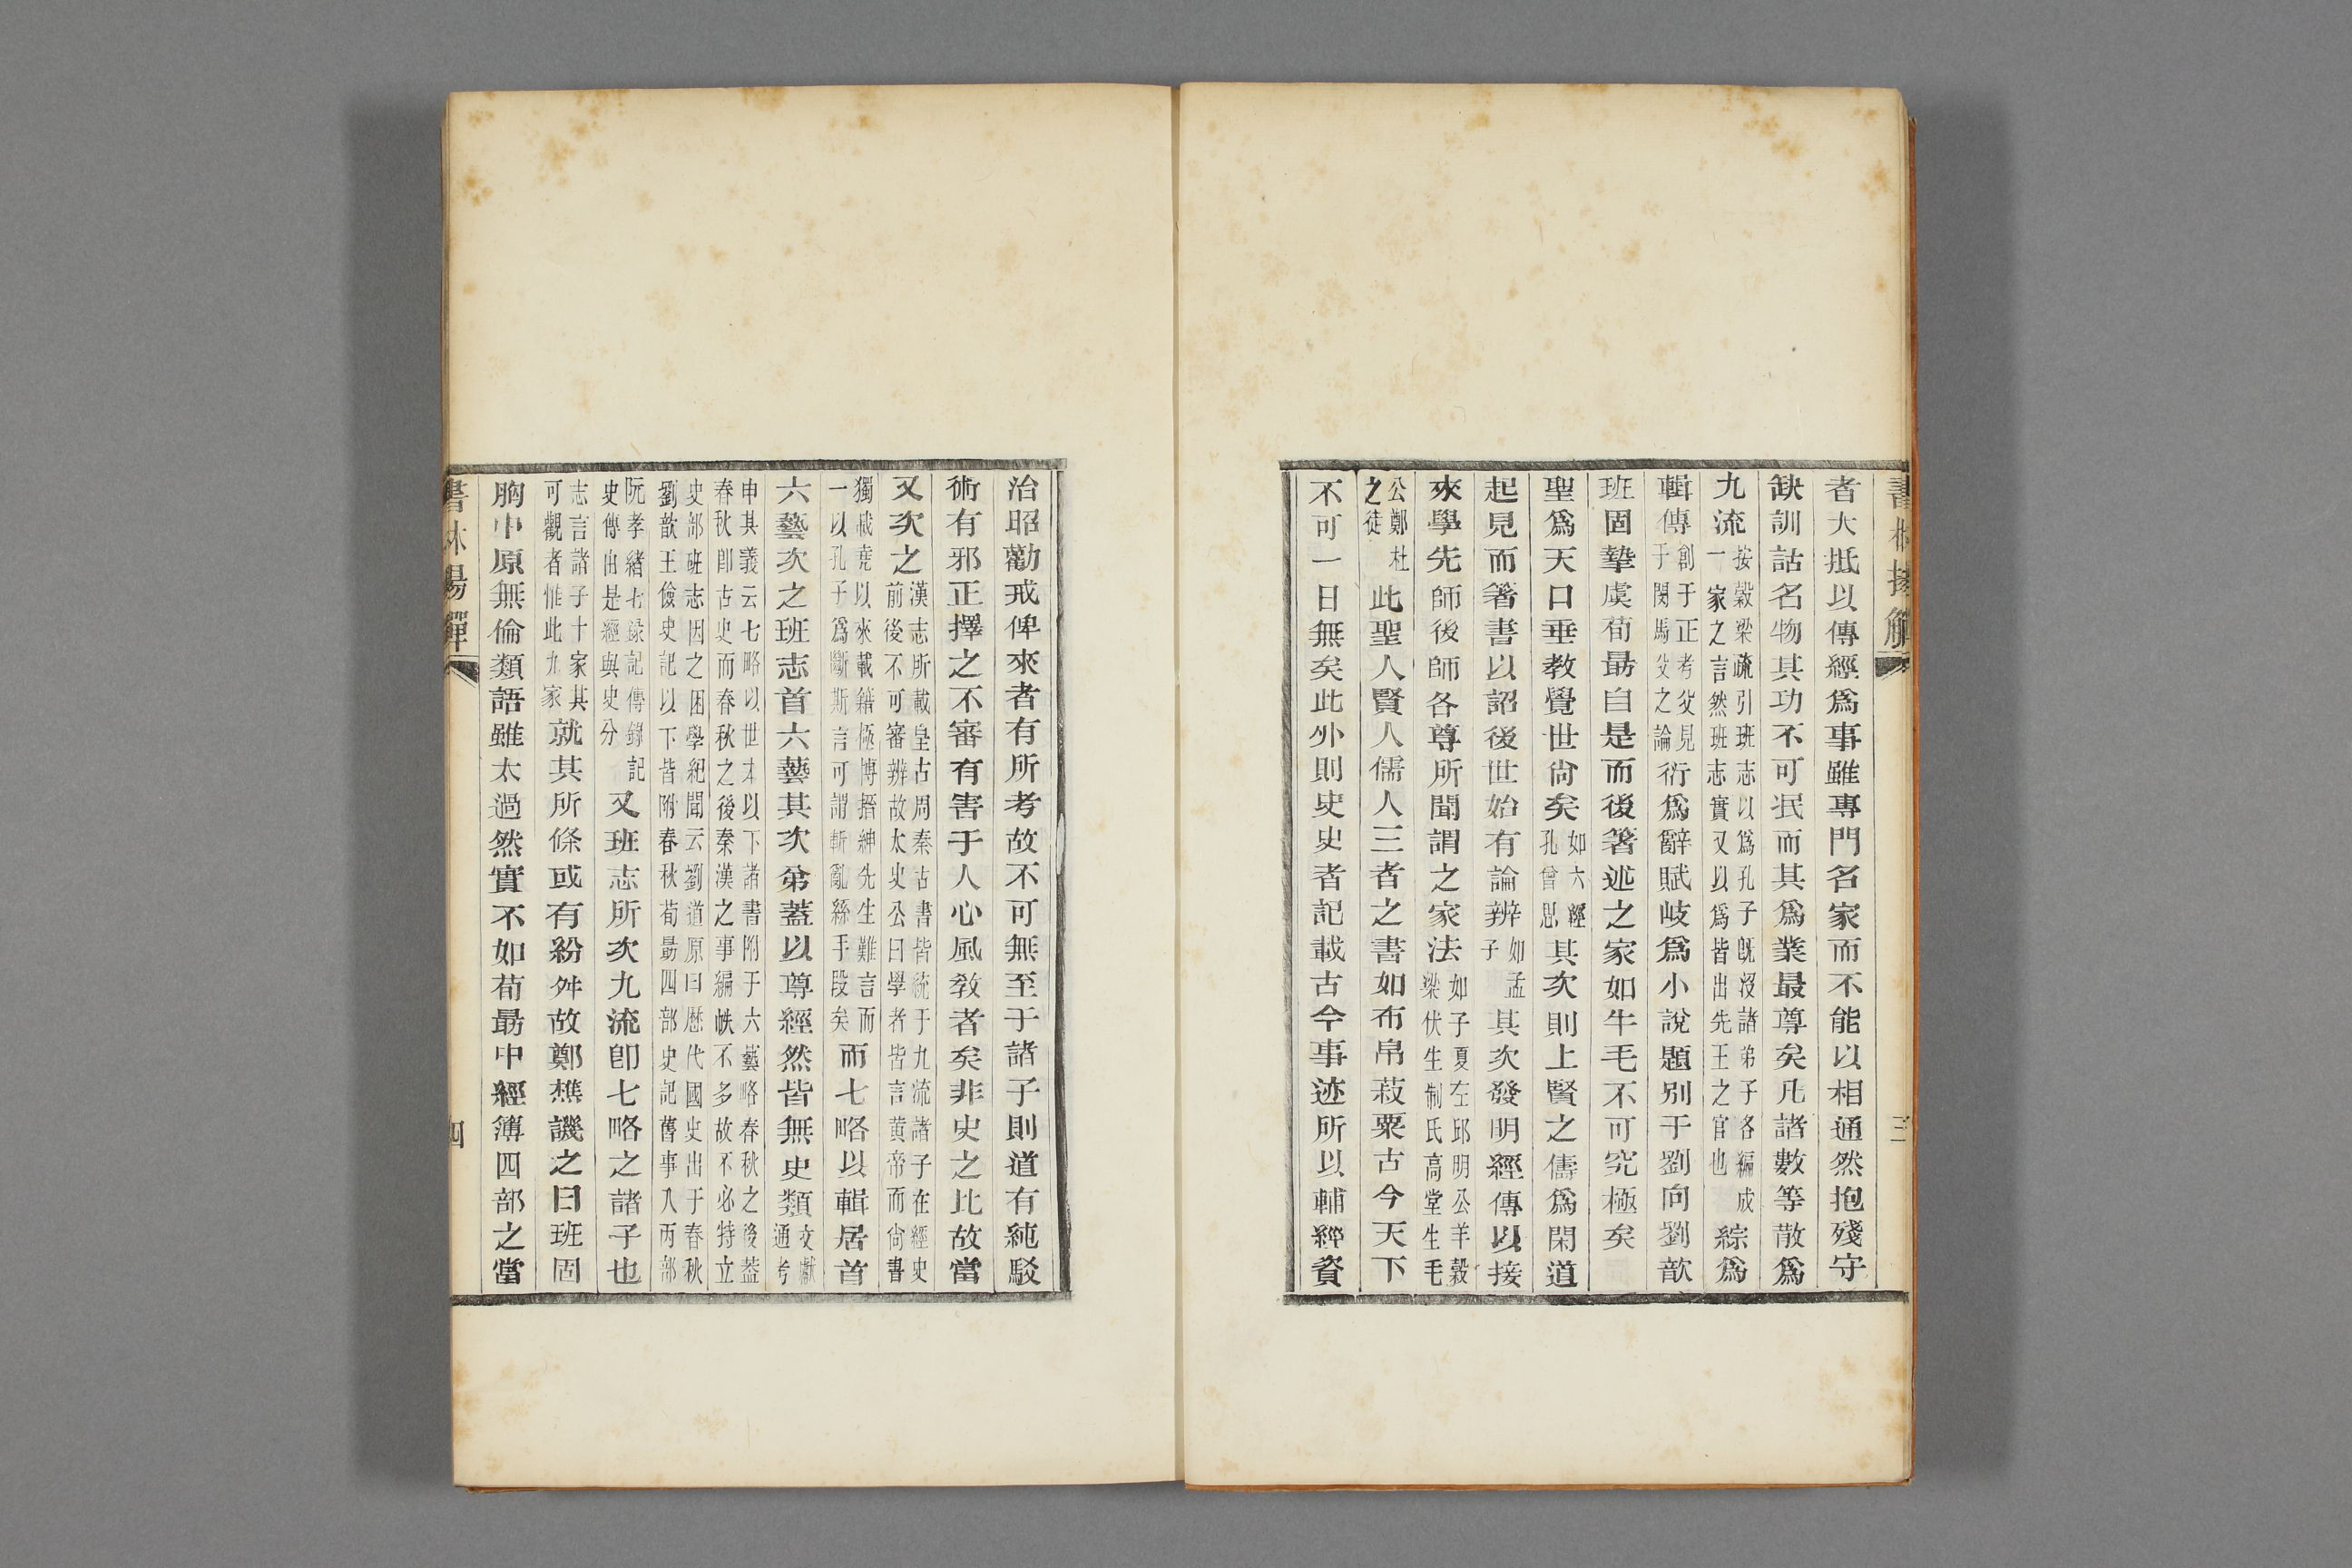 者大抵以傳經爲事雖專門名家而不能以相通然抱殘守
缺訓詁名物其功不可泯而其爲業最尊矣凡諸數等散爲
九流按穀梁疏引班志以爲孔子旣沒諸弟子各編成一家之言然班志實又以爲皆出先王之官也綜爲
輯傳創于正考父見于閔馬父之論衍爲辭賦岐爲小說題別于劉向劉歆
班固摯虞荀勗自是而後箸述之家如牛毛不可究極矣
聖爲天口垂教覺世尙矣如六經孔曾思其次則上賢之儔爲閑道
起見而箸書以詔後世始有論辨如孟子其次發明經傳以接
來學先師後師各尊所聞謂之家法如子夏左邱明公羊穀梁伏生制氏高堂生毛
公鄭杜之徒此聖人賢人儒人三者之書如布帛菽粟古今天下
不可一日無矣此外則史史者記載古今事迹所以輔經資
三
治昭勸戒俾來者有所考故不可無至于諸子則道有純駁
術有邪正擇之不審有害于人心風敎者矣非史之比故當
又次之漢志所載皇古周秦古書皆統于九流諸子在經史前後不可審辨故太史公曰學者皆言黃帝而尙書
獨載堯以來載籍極博搢紳先生難言而一以孔子爲斷斯言可謂斬亂絲手段矣而七略以輯居首
六藝次之班志首六藝其次第蓋以尊經然皆無史類文獻通考
申其義云七略以世本以下諸書附于六藝略春秋之後蓋春秋卽古史而春秋之後秦漢之事編帙不多故不必特立
史部班志因之困學紀聞云劉道原曰歷代國史出于春秋劉歆王儉史記以下皆附春秋荀勗四部史記舊事入丙部
阮孝緒七錄記傳錄記史傳由是經與史分又班志所次九流卽七略之諸子也
志言諸子十家其可觀者惟此九家就其所條或有紛舛故鄭樵譏之曰班固
胸中原無倫類語雖太過然實不如荀勗中經簿四部之當
四